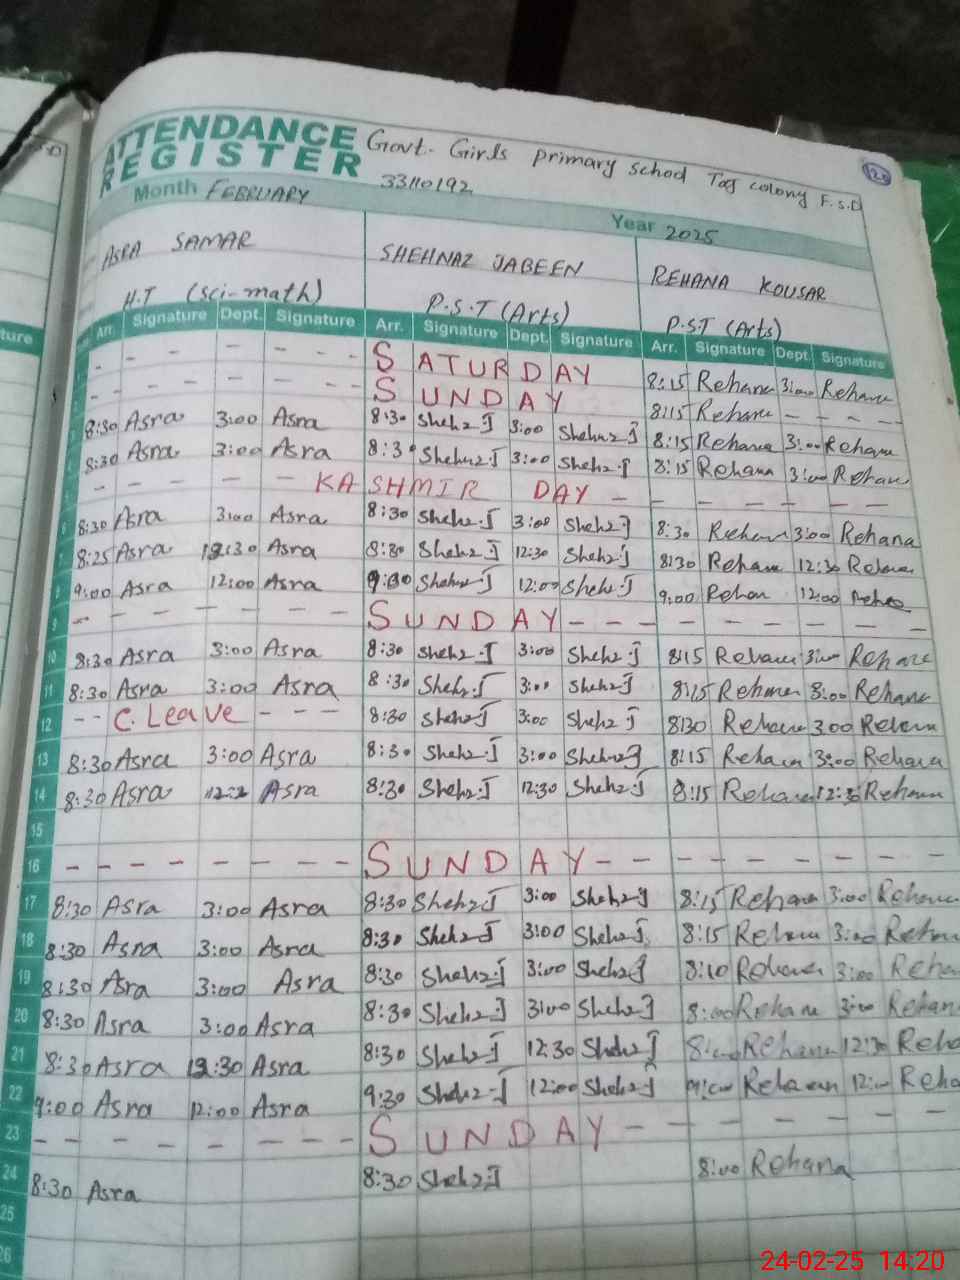 ATTENDANCE REGISTER Govt. Girls primary school Taj colony F.S.D 120
33110192
Month FEBRUARY Year 2025
ASRA SAMAR SHEHNAZ JABEEN REHANA KOUSAR
H.T (Sci-math) P.S.T (Arts) P.S.T (Arts)
Arr. Signature Dept. Signature Arr. Signature Dept. Signature Arr. Signature Dept. Signature
- - - - - - - SATURDAY 8:15 Rehana 3:00 Rehana
- - - - - - - SUNDAY 8:15 Rehana - - - -
3 8:30 Asra 3:00 Asra 8:30 Shehz.J 3:00 Shehnz J 8:15 Rehana 3:00 Rehana
4 8:30 Asra 3:00 Asra 8:30 Shehnz.J 3:00 Shehz.J 8:15 Rehana 3:00 Rehan
5 - - - - - KASHMIR DAY - - - - - -
6 8:30 Asra 3:00 Asra 8:30 Shehz.J 3:00 Shehz J 8:30 Rehana 3:00 Rehana
7 8:25 Asra 12:30 Asra 8:30 Shehz J 12:30 Shehz J 8:30 Rehana 12:30 Rehana
8 9:00 Asra 12:00 Asra 9:00 Shehz-J 12:00 Shehz J 9:00 Rehan 12:00 Rehana
9 - - - - - - - SUNDAY - - - - - - - -
10 8:30 Asra 3:00 Asra 8:30 Shehz.J 3:00 Shehz.J 8:15 Rehana 3:00 Rehana
11 8:30 Asra 3:00 Asra 8:30 Shehz.J 3:00 Shehz J 8:15 Rehana 8:00 Rehana
12 - - C. Leave - - - 8:30 Shehz J 3:00 Shehz J 8:30 Rehana 3:00 Rehana
13 8:30 Asra 3:00 Asra 8:30 Shehz.J 3:00 Shehnz J 8:15 Rehana 3:00 Rehana
14 8:30 Asra Asra 8:30 Shehz.J 12:30 Shehz.J 8:15 Rehana 12:30 Rehana
15
16 - - - - - - - - SUNDAY - - - - - - - -
17 8:30 Asra 3:00 Asra 8:30 Shehz J 3:00 Shehz J 8:15 Rehana 3:00 Rehana
18 8:30 Asra 3:00 Asra 8:30 Shehz J 3:00 Shehz J. 8:15 Rehana 3:00 Rehan
19 8:30 Asra 3:00 Asra 8:30 Shehz.J 3:00 Shehz J 8:10 Rehana 3:00 Reha
20 8:30 Asra 3:00 Asra 8:30 Shehz.J 3:00 Shehz J 8:00 Rehana 3:00 Rehan
21 8:30 Asra 12:30 Asra 8:30 Shehz J 12:30 Shehz J 8:00 Rehana 12:30 Reha
22 9:00 Asra 12:00 Asra 9:30 Shehz-J 12:00 Shehz-J 9:00 Rehana 12:00 Reha
23 - - - - - - - - SUNDAY - - - - - - -
24 8:30 Asra 8:30 Shehz J 8:00 Rehana
25
26
24-02-25 14:20